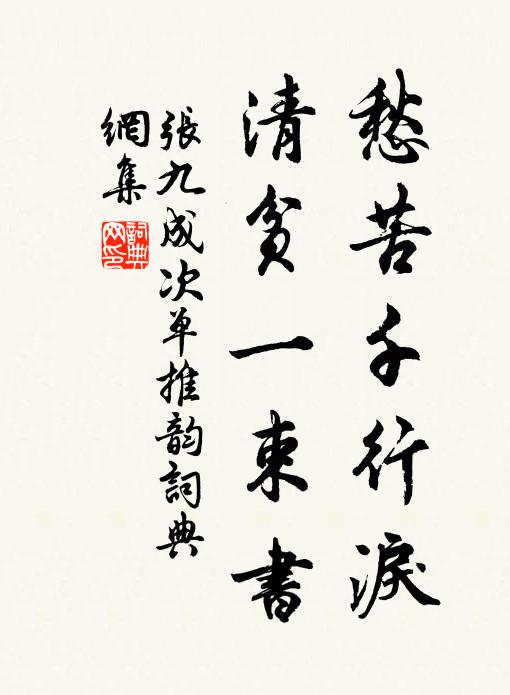 愁苦千行淚
清貧一束書
張九成次單推韵詞典
網集
詞典
网印